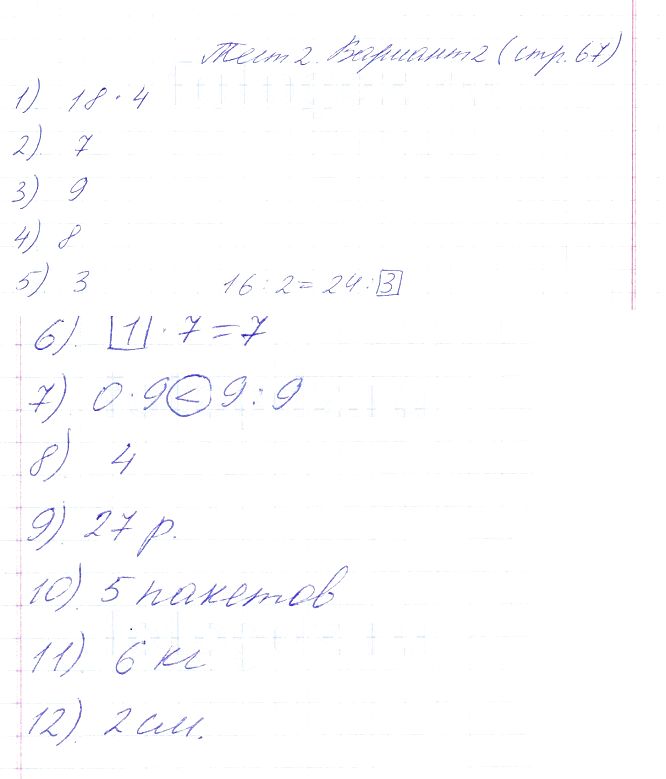 Тест 2. Вариант 2 (стр. 67)
1) 18 · 4
2) 7
3) 9
4) 8
5) 3 16 : 2 = 24 : 3
6) 1 · 7 = 7
7) 0 · 9 < 9 : 9
8) 4
9) 27 р.
10) 5 пакетов
11) 6 кг
12) 2 см.